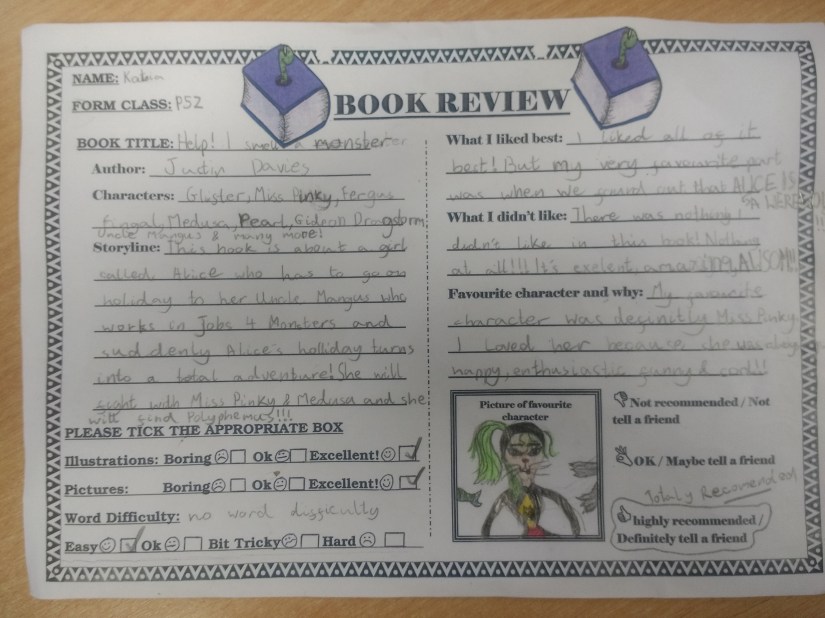 BOOK REVIEW
NAME: Katrin
FORM CLASS: P52
BOOK TITLE: Help! I smell a monster
Author: Justin Davies
Characters: Gluster, Miss Pinky, Fergus
Fingal, Medusa, Pearl, Gideon Drongstorm,
Uncle Mangus & many more!
Storyline: This book is about a girl
called Alice who has to go on
holiday to her Uncle Mangus who
works in Jobs 4 Monsters and
suddenly Alice's holliday turns
into a total adventure! She will
fight with Miss Pinky & Medusa and she
will find Polyphemus!!!
PLEASE TICK THE APPROPRIATE BOX
Illustrations: Boring Ok Excellent!
Pictures: Boring Ok Excellent!
Word Difficulty: no word difficulty
Easy Ok Bit Tricky Hard
What I liked best: I liked all of it
best! But my very favourite part
was when we found out that ALICE IS
A WEREWOLF!!!
What I didn't like: There was nothing I
didn't like in this book! Nothing
at all!!! It's exelent, amazing, AWSOM!!!
Favourite character and why: My favourite
character was definitly Miss Pinky
I loved her because she was always
happy, enthusiastic funny & cool!!
Picture of favourite
character
Not recommended / Not
tell a friend
OK / Maybe tell a friend
Totaly Recomend ool
highly recommended /
Definitely tell a friend